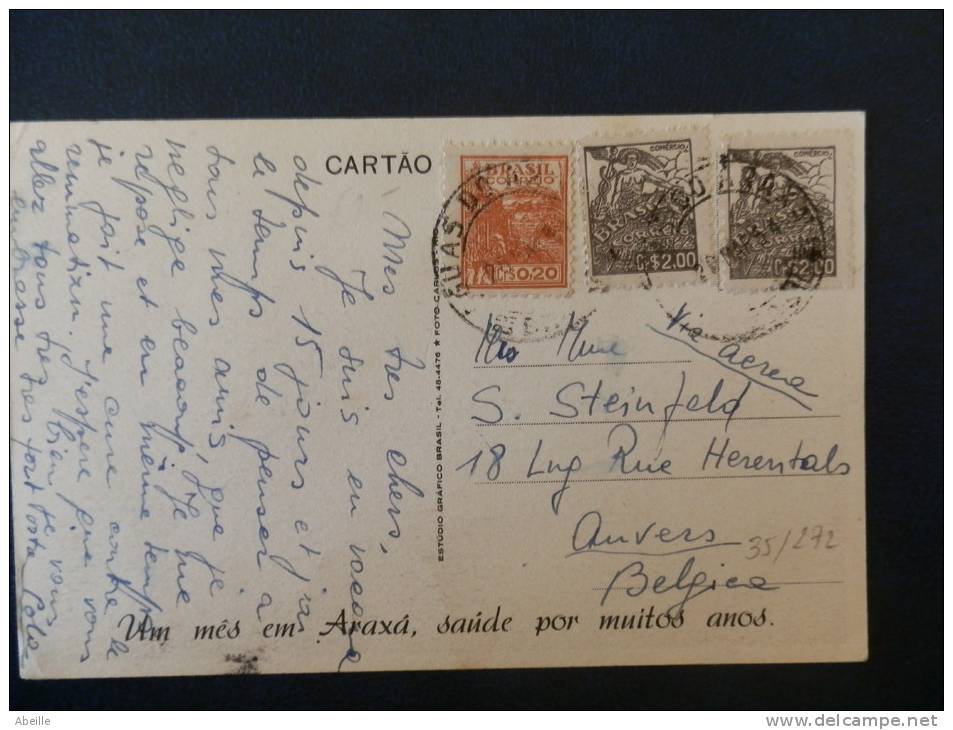 CARTÃO
BRASIL
CORREIO
Cr$0,20
COMÉRCIO
BRASIL
CORREIO
Cr$2,00
COMÉRCIO
BRASIL
CORREIO
Cr$2,00
Mes tres chers,
Je suis en vacance
depuis 15 jours et j'ai
le temps de penser a
tous mes amis, que je
neglige beaucoup. Je me
repose et en même temps
je fait une cure contre le
rummatism. J'espere que vous
allez tous tres bien je vous
embrasse tres fort
Via Aerea
Mme
S. Steinfeld
18 Lng Rue Herentals
Anvers
Belgica
35/272
ESTÚDIO GRÁFICO BRASIL - Tel. 48-4476 ★ FOTO CARLOS
Um mês em Araxá, saúde por muitos anos.
Abeille
delcampe.net